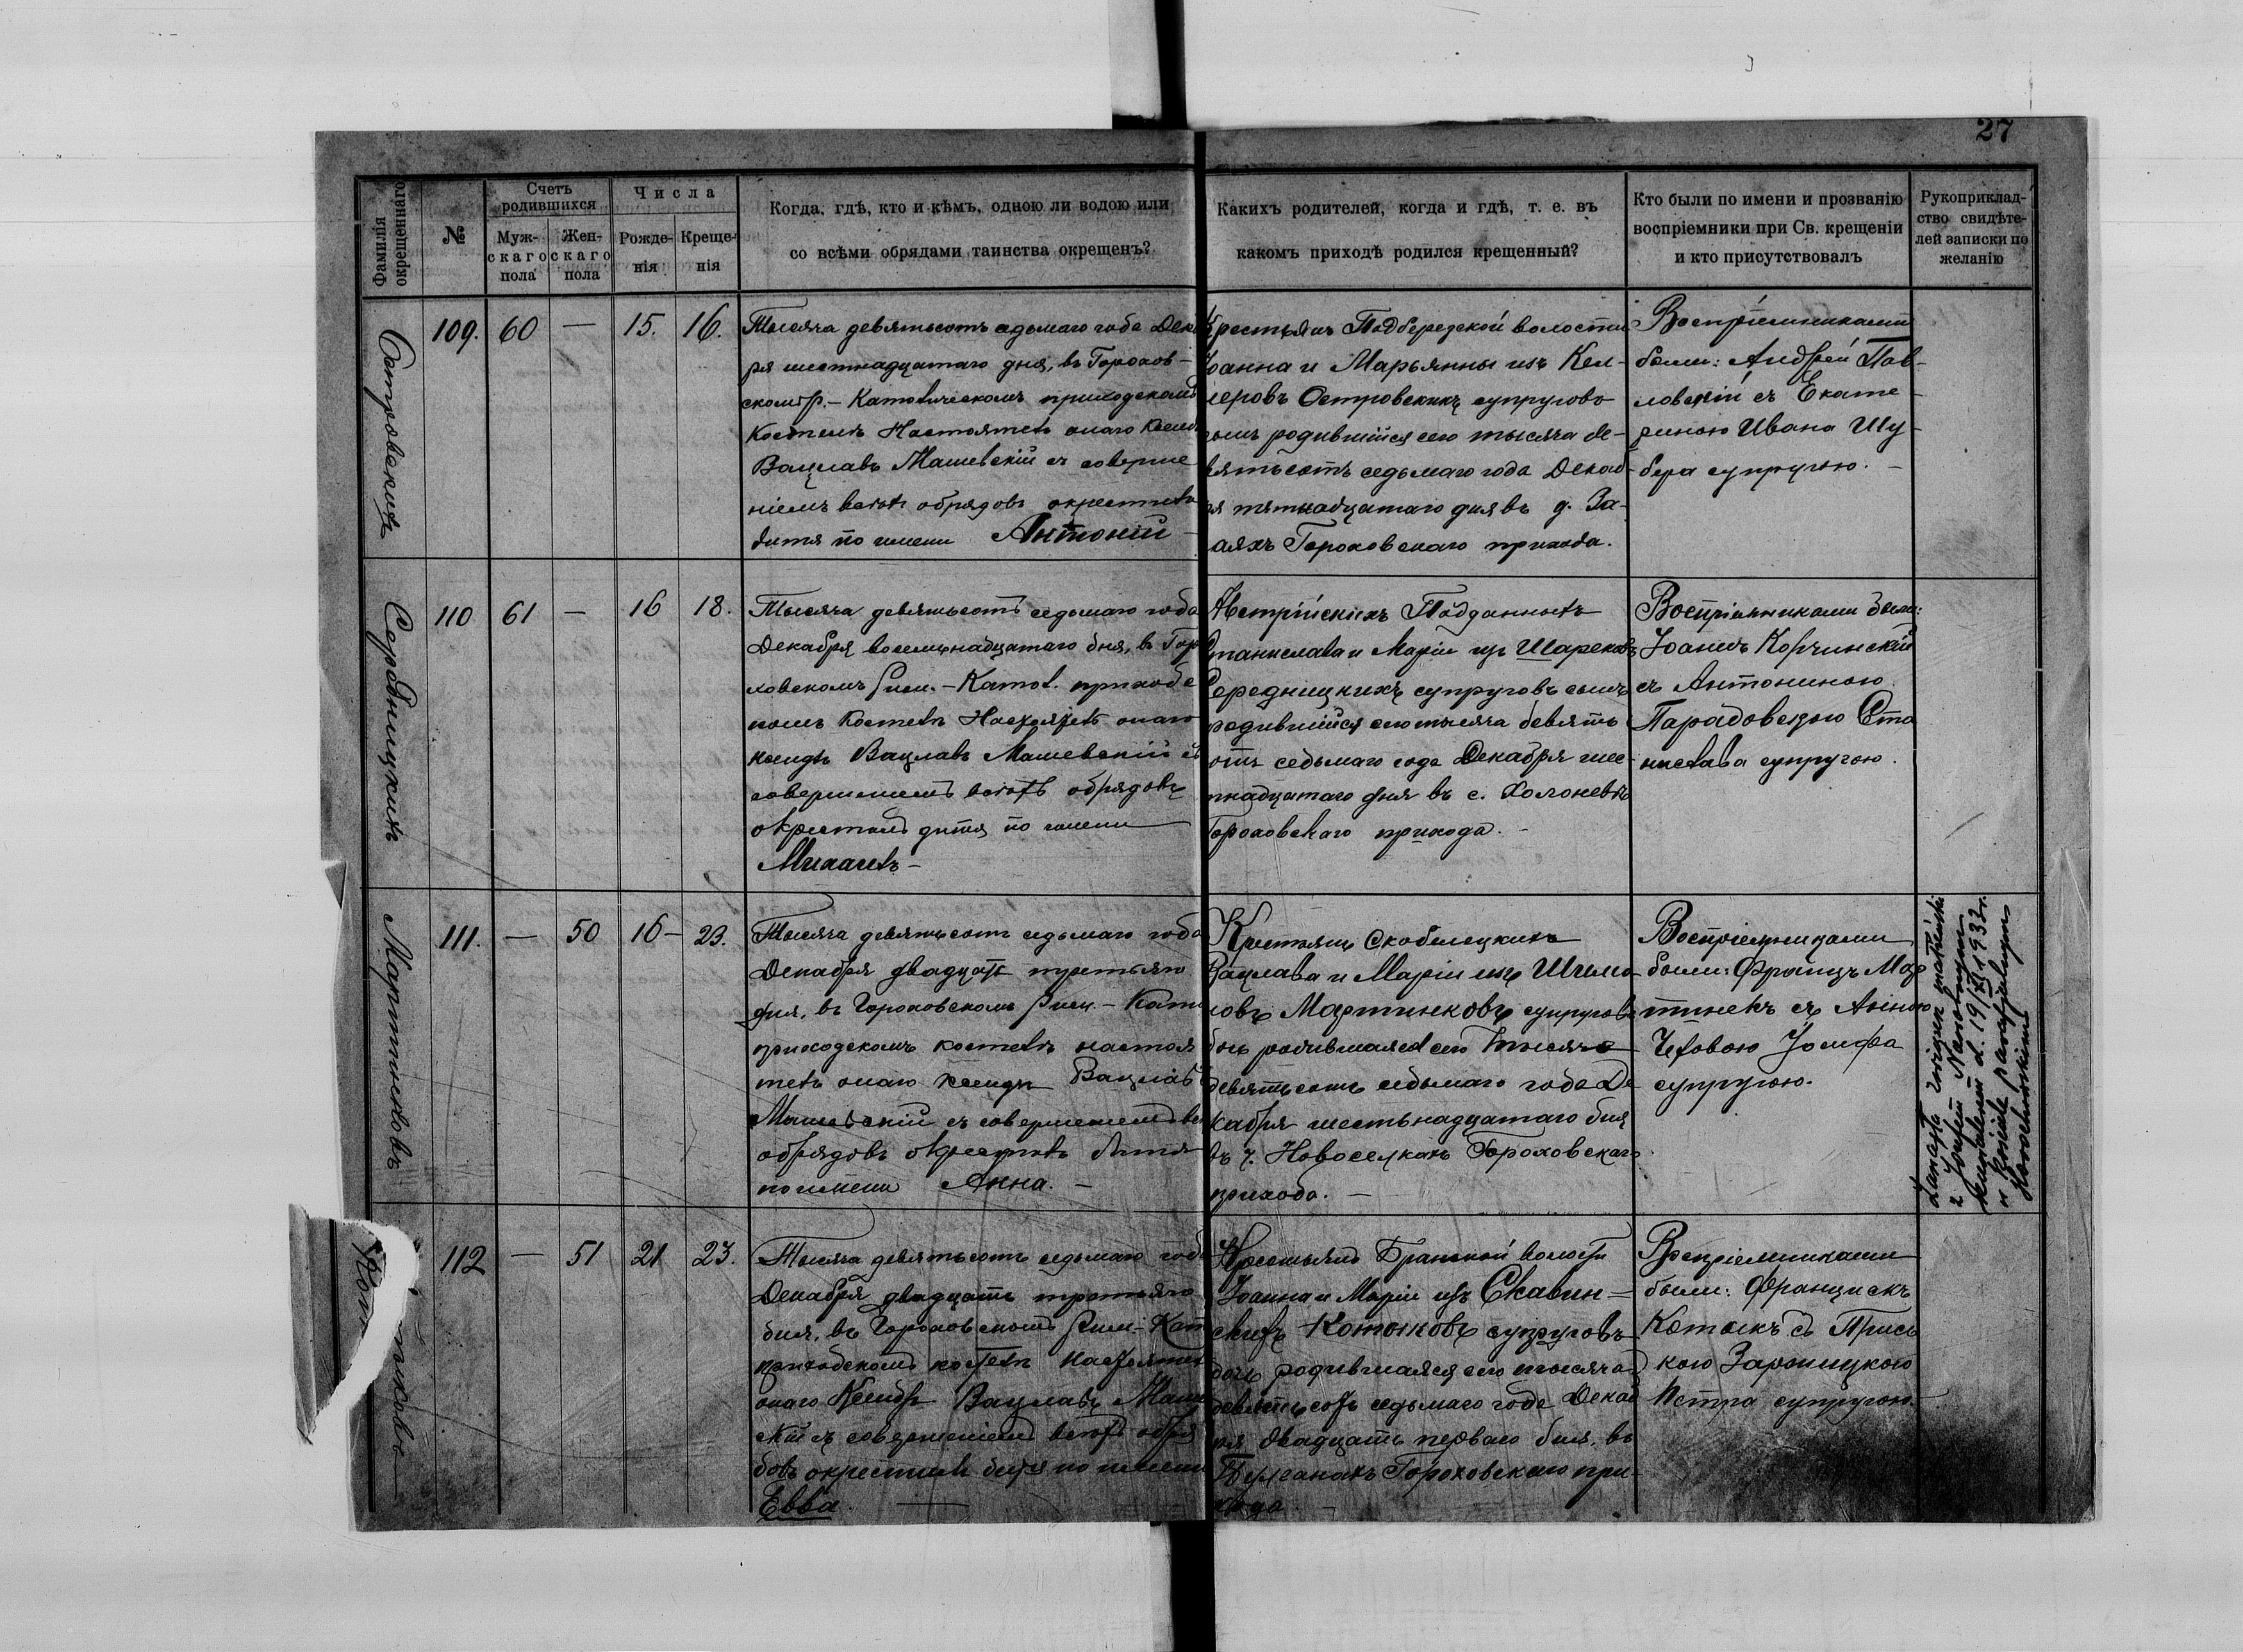 27
Фамилія окрещеннаго
№
Счетъ родившихся
Муж-скаго пола
Жен-скаго пола
Числа
Рожде-нія
Креще-нія
Когда, гдѣ, кто и кѣмъ, одною ли водою или
со всѣми обрядами таинства окрещенъ?
Какихъ родителей, когда и гдѣ, т. е. въ
какомъ приходѣ родился крещенный?
Кто были по имени и прозванію
воспріемники при Св. крещеніи
и кто присутствовалъ
Рукоприклад-
ство свидѣте-
лей записки по
желанію
Островскихъ
109. 60 — 15. 16.
Тысяча девятьсотъ седьмаго года Дека
ря шестнадцатаго дня, въ Горохов-
скомъ Р.-Католическомъ приходскомъ
Костелѣ Настоятель онаго Ксендзъ
Вацлавъ Машевскій съ соверше
ніемъ всѣхъ обрядовъ окрестилъ
дитя по имени Антоній
Крестьянъ Подберезской волости
Іоанна и Марьянны изъ Кел-
леровъ Островскихъ супруговъ
сынъ родившійся сего тысяча де-
вятьсотъ седьмаго года Декаб-
ря пятнадцатаго дня въ д. За-
аяхъ Гороховскаго прихода.
Воспріемниками
были: Андрей Пав-
ловскій съ Екате-
риною Ивана Шу-
бера супругою.
Середницкихъ
110 61 — 16 18.
Тысяча девятьсотъ седьмаго года
Декабря восемнадцатаго дня, въ Горо
ховскомъ Рим.-Катол. приход
скомъ Костелѣ Настоятель онаго
Ксендзъ Вацлавъ Машевскій съ
совершеніемъ всѣхъ обрядовъ
окрестилъ дитя по имени
Михаилъ -
Австрійскихъ Подданныхъ
Станислава и Маріи изъ Шарековъ
Середницкихъ супруговъ сынъ
родившійся сего тысяча девять
сотъ седьмаго года Декабря шес-
тнадцатаго дня въ с. Холоневѣ
Гороховскаго прихода. -
Воспріемниками были:
Іоаннъ Корчинскій
съ Антониною
Парадовскою Ста
нислава супругою.
Мартинковъ
111. — 50 16 - 23.
Тысяча девятьсотъ седьмаго года
Декабря двадцать третьяго
дня, въ Гороховскомъ Рим.-Като
приходскомъ костелѣ настоя
тель онаго Ксендзъ Вацлавъ
Машевскій съ совершеніемъ всѣхъ
обрядовъ окрестилъ дитя
по имени Анна. -
Крестьянъ Скобелецкихъ
Вацлава и Маріи изъ
Мартинковъ супруговъ
дочь родившаяся сего тысяча
девятьсотъ седьмаго года Де
кабря шестьнадцатаго дня
въ ч. Новоселкахъ Гороховскаго
прихода. -
Воспріемниками
были: Францъ Мар
тинекъ съ Анною
Чеховою Іосифа
супругою.
Zawarła związek małżeński
z Józefem
d. 19/XI 1933 r.
w kościele parafjalnym
112 — 51 21 23.
Тысяча девятьсотъ седьмаго года
Декабря двадцать третьяго
дня, въ Гороховскомъ Рим.-Кат
приходскомъ костелѣ Настоятель
онаго Ксендзъ Вацлавъ Машев
скій съ совершеніемъ всѣхъ обря
довъ окрестилъ дитя по имени
Евва.
Крестьянъ Бранской волости
Іоанна и Маріи изъ Скавин-
скихъ Котыковъ супруговъ
дочь родившаяся сего тысяча
девятьсотъ седьмаго года Декаб
ря двадцать перваго дня, въ
Гороховскаго при-
хода -
Воспріемниками
были: Францискъ
Котыкъ съ
Петра супругою.